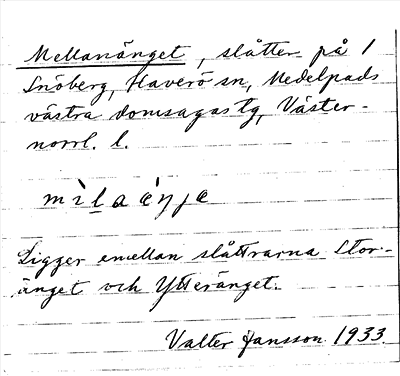 Mellanänget, slåtter på 1
Snöberg, Haverö sn, Medelpads
västra domsagas tg, Väster-
norrl. l.
Ligger emellan slåttrarna Stor-
änget och Ytteränget.
Valter Jansson 1933.